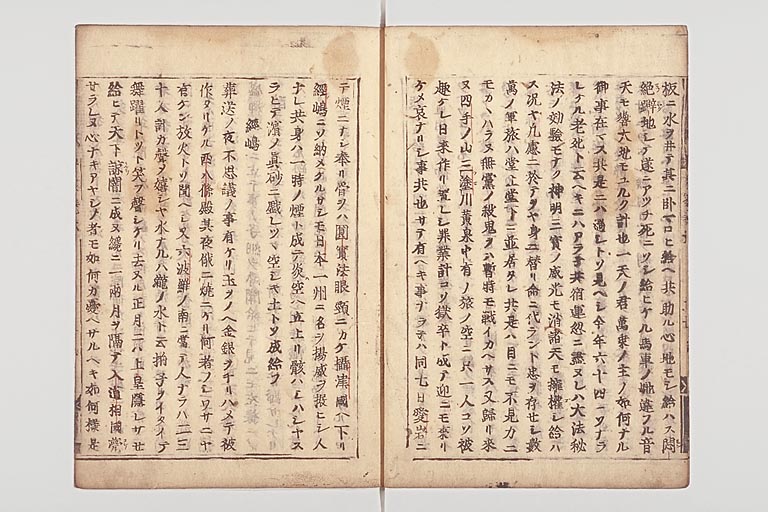 板ニ水ヲ井テ其ニ卧マロヒ給ヘ共助ル心地モシ給ハス悶
絶躃地シテ遂ニアツチ死ニソシ給ヒケル馬車ノ馳違フル音
天モ響キ大地モユルク計也一天ノ君萬乗ノ主ノ如何ナル
御事在マス共是ニハ過シトソ見ヘシ今年六十四ニソナラ
レケル老死ト云ヘキニハアラネ共宿運忽ニ盡ヌレハ大法秘
法ノ効験モナク神明三寳ノ威光モ消諸天モ擁護シ給ハ
ス况ヤ凡慮ニ於テヲヤ身ニ替リ命ニ代ラント忠ヲ存セシ数
萬ノ軍旅ハ堂上堂下ニ並居タレ共是ハ目ニモ不見力ニ
モカヽハラヌ無常ノ殺鬼ヲハ暫時モ戦イカヘサス又歸リ来
ヌ四手ノ山三塗川黄泉中有ノ旅ノ空ニ只一人コソ被
趣ケレ日来作リ置シ罪業計コソ獄卒ト成テ迎ニモ来リ
ケメ哀ナリシ事共也サテ有ヘキ事ナラネハ同七日愛宕ニ
テ煙ニナシ奉リ骨ヲハ圓實法眼頸ニカケ攝津國ヘ下リ
經嶋ニソ納メケルサシモ日本一州ニ名ヲ揚威ヲ振ヒシ人
ナレ共身ハ一時ノ煙ト成テ炎空ヘ立上リ骸ハシハシヤス
ラヒテ濱ノ眞砂ニ戯レツヽ空シキ土トソ成給フ
經嶋
葬送ノ夜不思議ノ事有ケリ玉ヲノヘ金銀ヲチリハメテ被
作タリケル西八條殿其夜俄ニ焼ニケリ何者ノシワサニヤ
有ケン放火トソ聞ヘシ又六波羅ノ南ニ當テ人ナラハ二三
十人計カ聲ヲ嬉シヤ水ナルハ瀧ノ水ト云拍子ヲイタイテ
舞躍リトツト笑フ聲シケリ去ヌル正月ニハ上皇隠レサセ
給ヒテ天下諒闇ニ成ヌ纔ニ一両月ヲ隔テ入道相國薨
サラレヌ心ナキアヤシノ者モ如何カ憂ヘサルヘキ如何様是